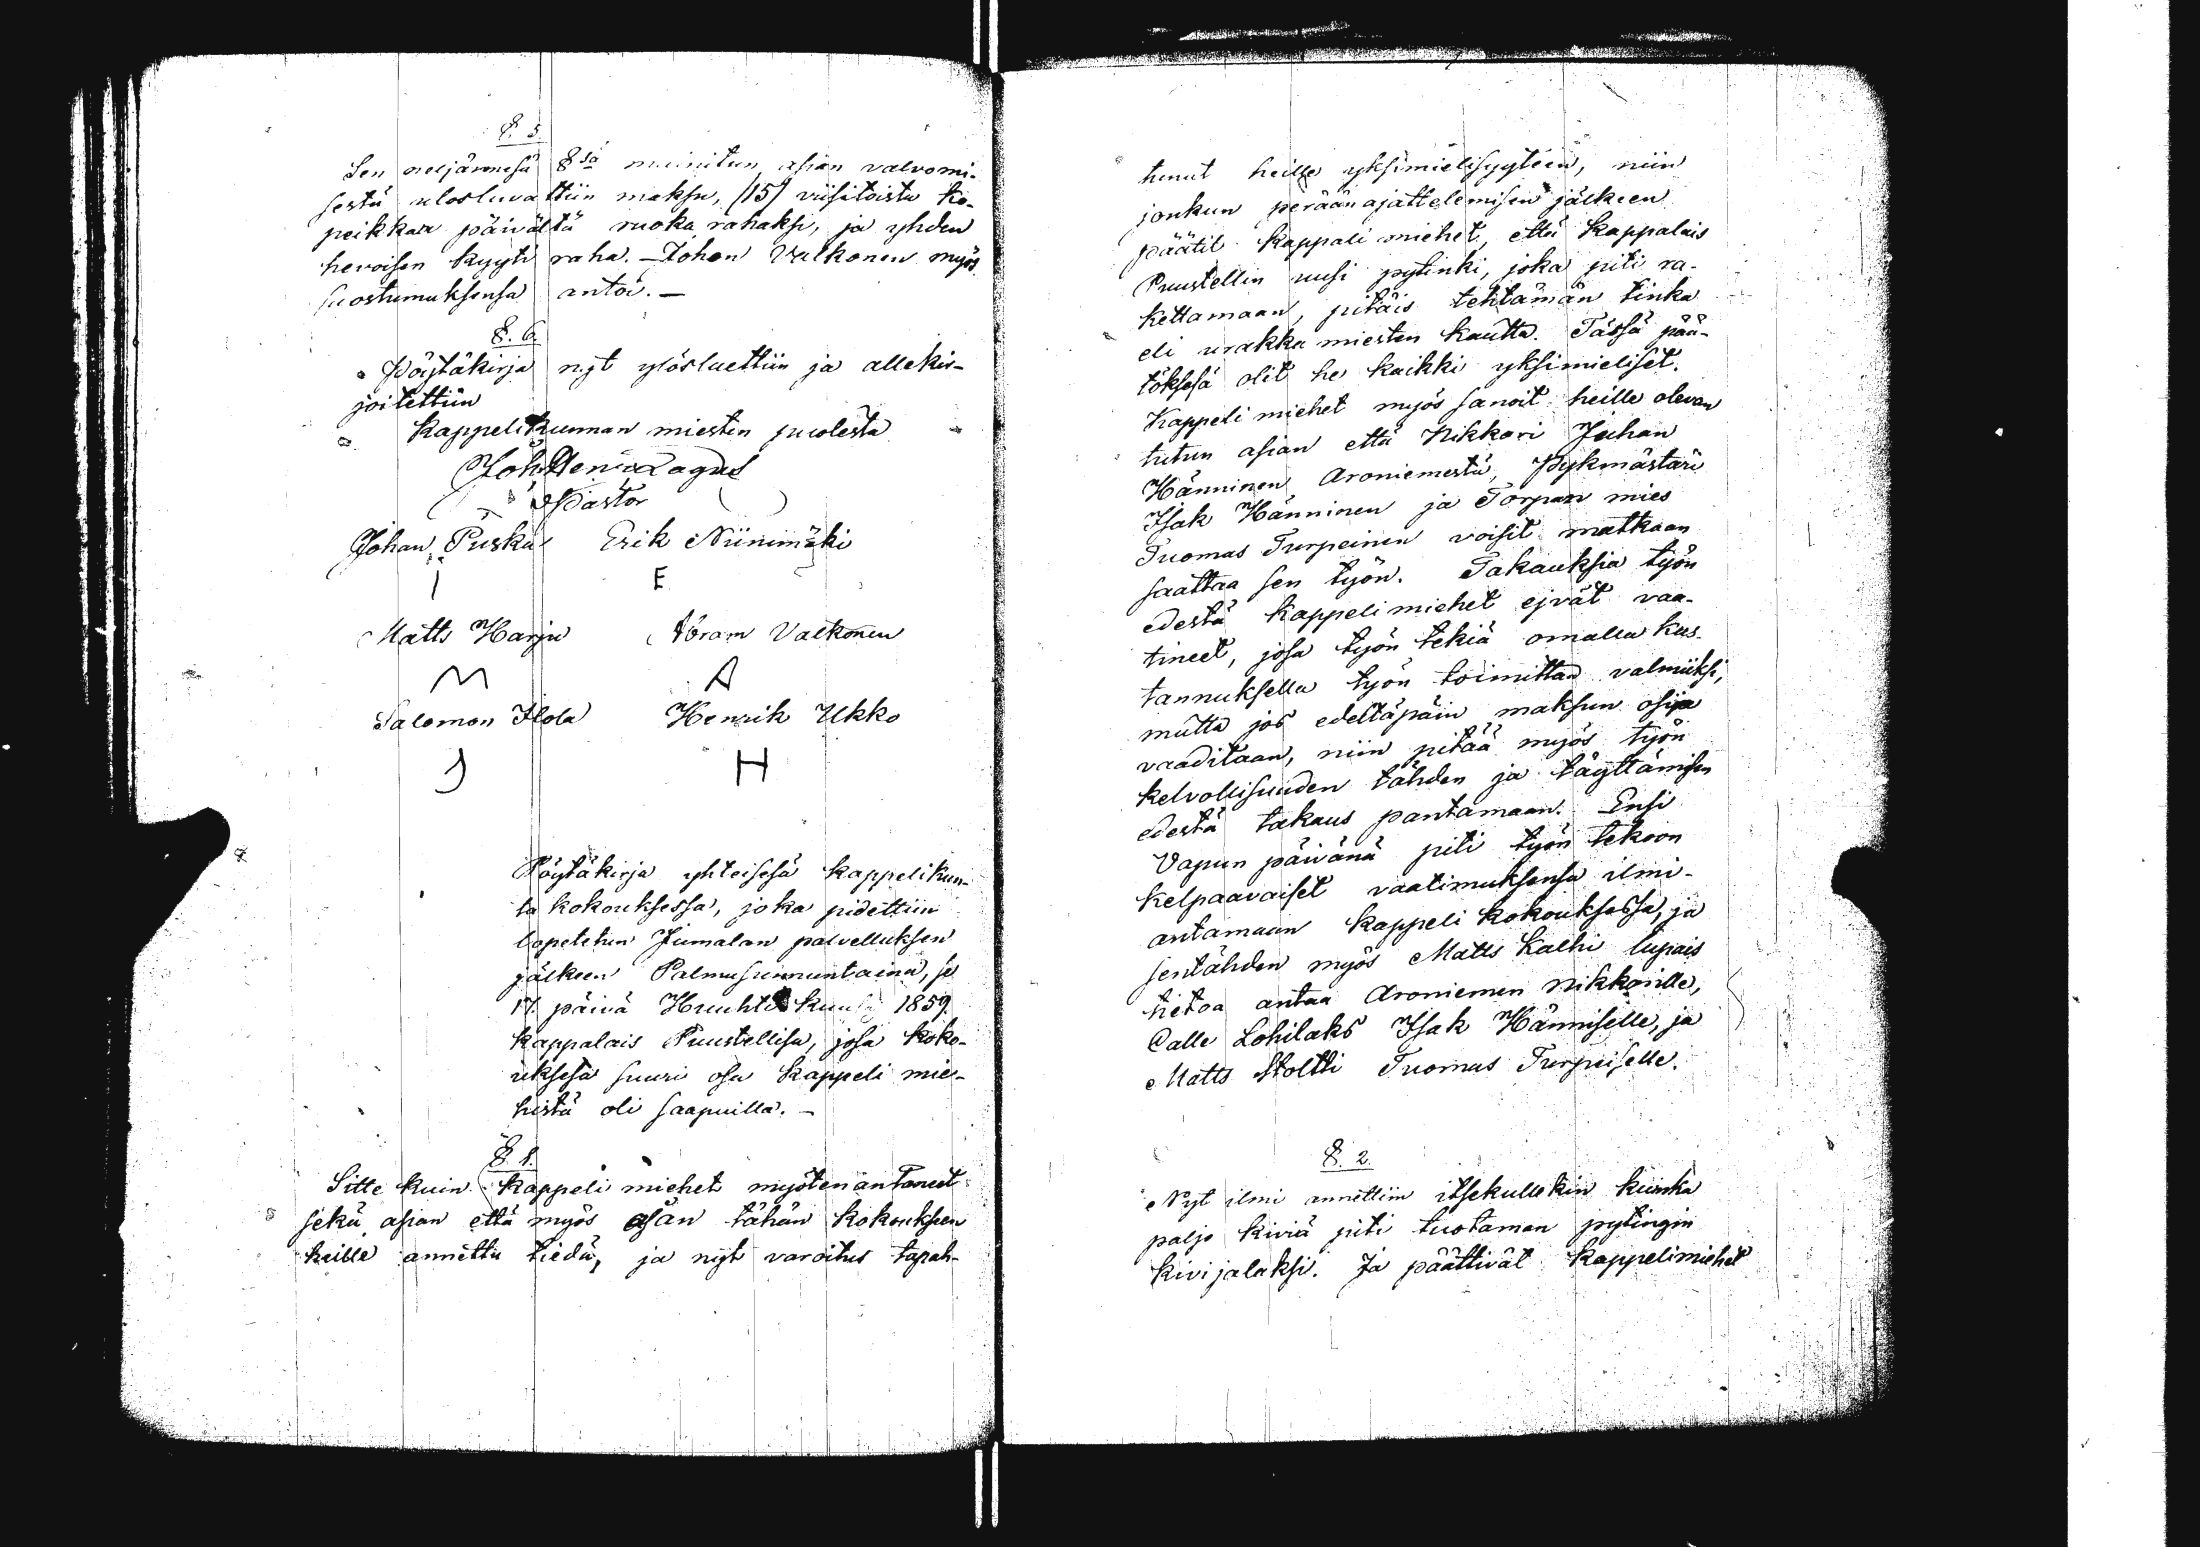 §. 5.
Sen neljännesä §sä mainitun asian valvomi-
sestä ulosluvattiin maksu, (15) viisitoista ko-
peikkaa päivältä ruoka rahaksi, ja yhden
hevoisen kyyti raha. – Johan Valkonen myös
suostumuksensa antoi. –
§. 6.
Pöytäkirja nyt ylösluettiin ja allekir-
joitettiin
Kappelikunnan miesten puolesta
Joh. Henr. Lagus
Pastor
Johan Puska Erik Niinimäki
I E
Matts Harju Abram Valkonen
M A
Salomon Ilola Henrik Ukko
S H
Pöytäkirja yhteisesä kappelikun-
ta kokouksessa, joka pidettiin
lopetetun Jumalan palvelluksen
jälkeen Palmusunnuntaina, se
17. päivä Huuhti kuusa 1859.
Kappalais Puustellisa, josa koko-
uksesa suuri osa kappeli mie-
histä oli saapuilla. –
§. 1.
Sitte kuin kappeli miehet myötenantaneet
sekä asian että myös ajan tähän kokouksen
heille annettu tiedä, ja nyt varoitus tapah-
tunut heille yksimielisyyteen, niin
jonkun perään ajattelemisen jälkeen
päätit kappali miehet, että Kappalais
Puustellin uusi pytinki, joka piti ra-
kettamaan, pitäis tehtämän tinka
eli urakka miesten kautta. Tässä pää-
töksesä olit he kaikki yksimieliset.
Kappeli miehet myös sanoit heille olevan
tutun asian että Nikkari Juhan
Hänninen Aroniemestä, Pykmästari
Isak Hänninen ja Torpan mies
Tuomas Turpeinen voisit matkaan
saattaa sen työn. Takauksia työn
edestä kappeli miehet ejvät vaa-
tineet, josa työn tekiä omalla kus-
tannuksella työn toimittaa valmiiksi,
mutta jos edeltäpäin maksun osija
vaaditaan, niin pitää myös työn
kelvollisuuden tähden ja täyttämisen
edestä takaus pantamaan. Ensi
Vapun päivänä piti työn tekoon
kelpaavaiset vaatimuksensa ilmi-
antamaan kappeli kokouksessa, ja
sentähden myös Matts Lalhi lupais
tietoa antaa Aroniemen nikkarille,
Calle Lohilaks Isak Hänniselle, ja
Matts Stoltti Tuomas Turpeiselle.
§. 2.
Nyt ilmi annettiin itsekullekin kuinka
paljo kiviä piti tuotaman pytingin
kivijalaksi. Ja päättivät kappelimiehet